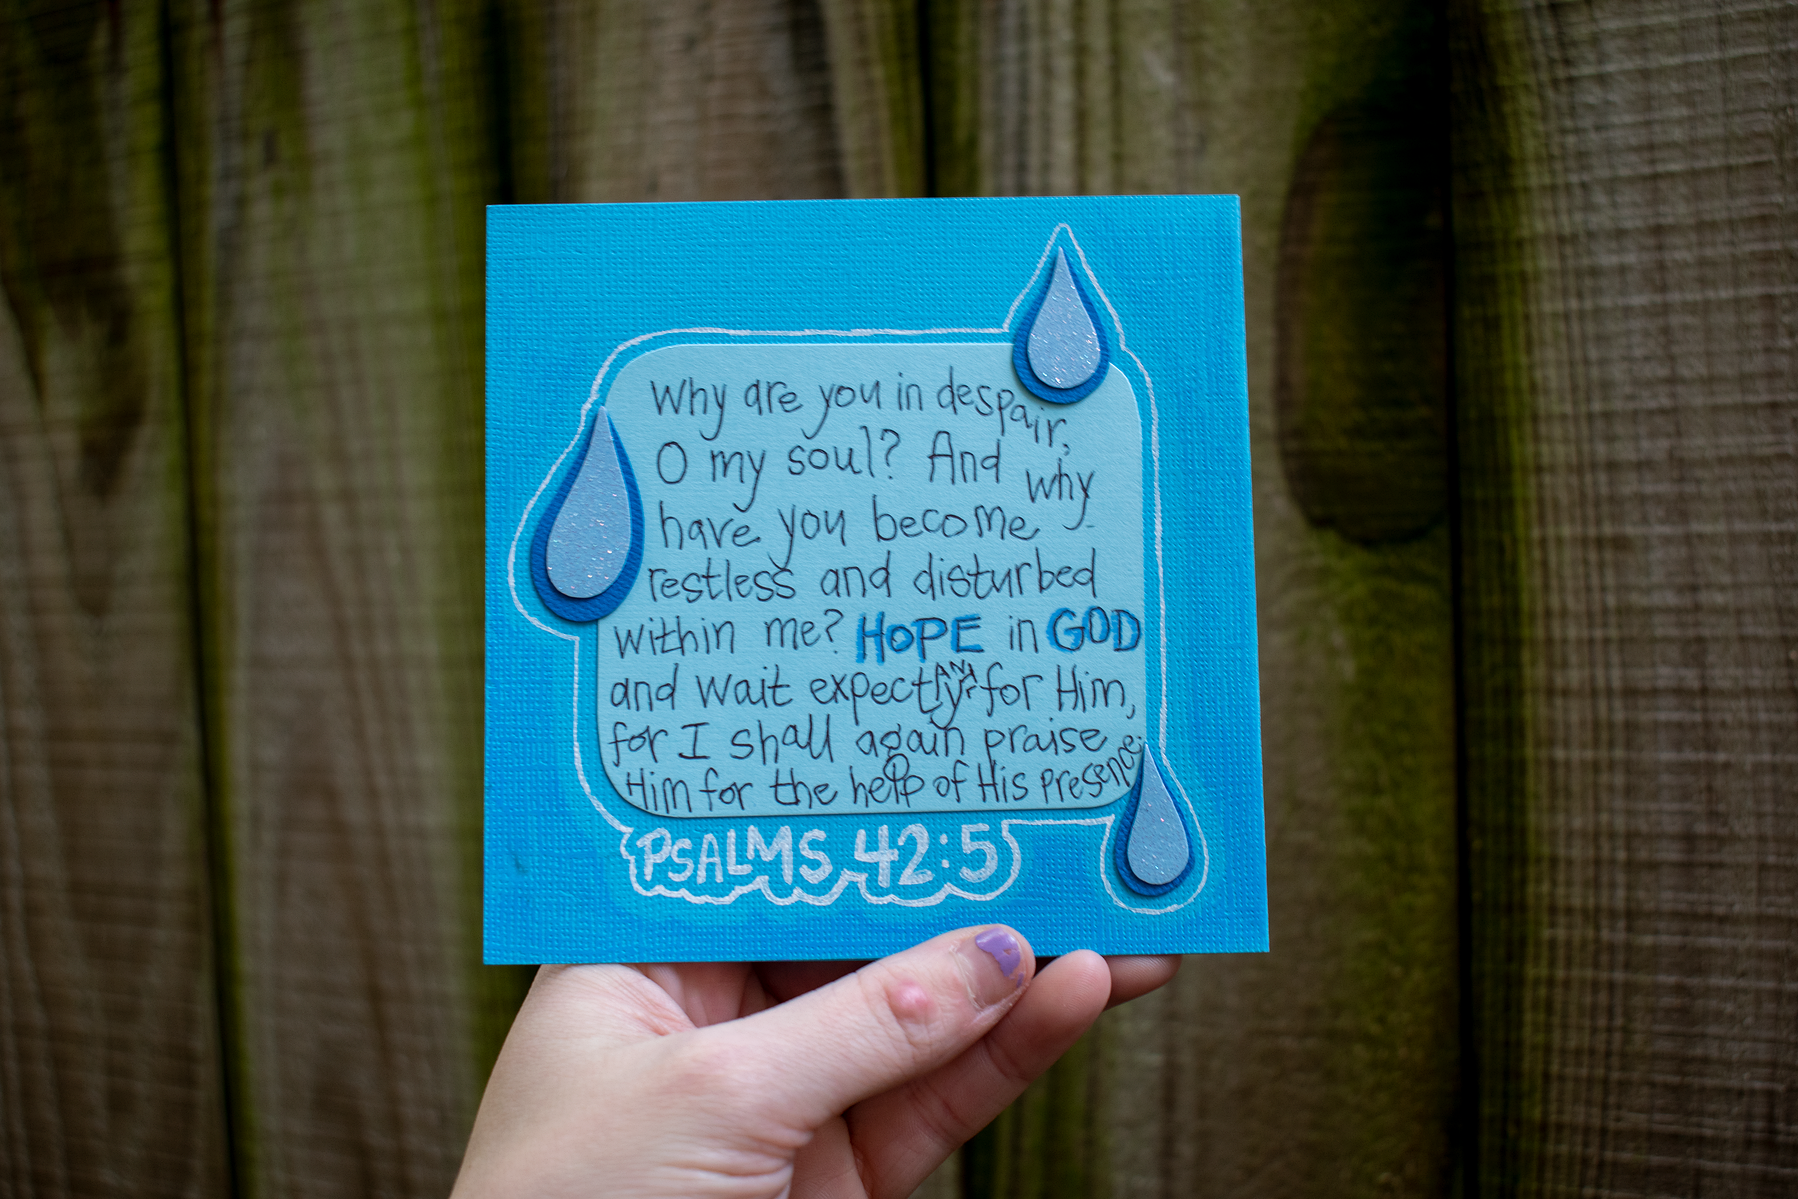 Why are you in despair,
O my soul? And why
have you become
restless and disturbed
within me? HOPE in GOD
and wait expectly for Him,
for I shall again praise
Him for the help of His presence.
PSALMS 42:5